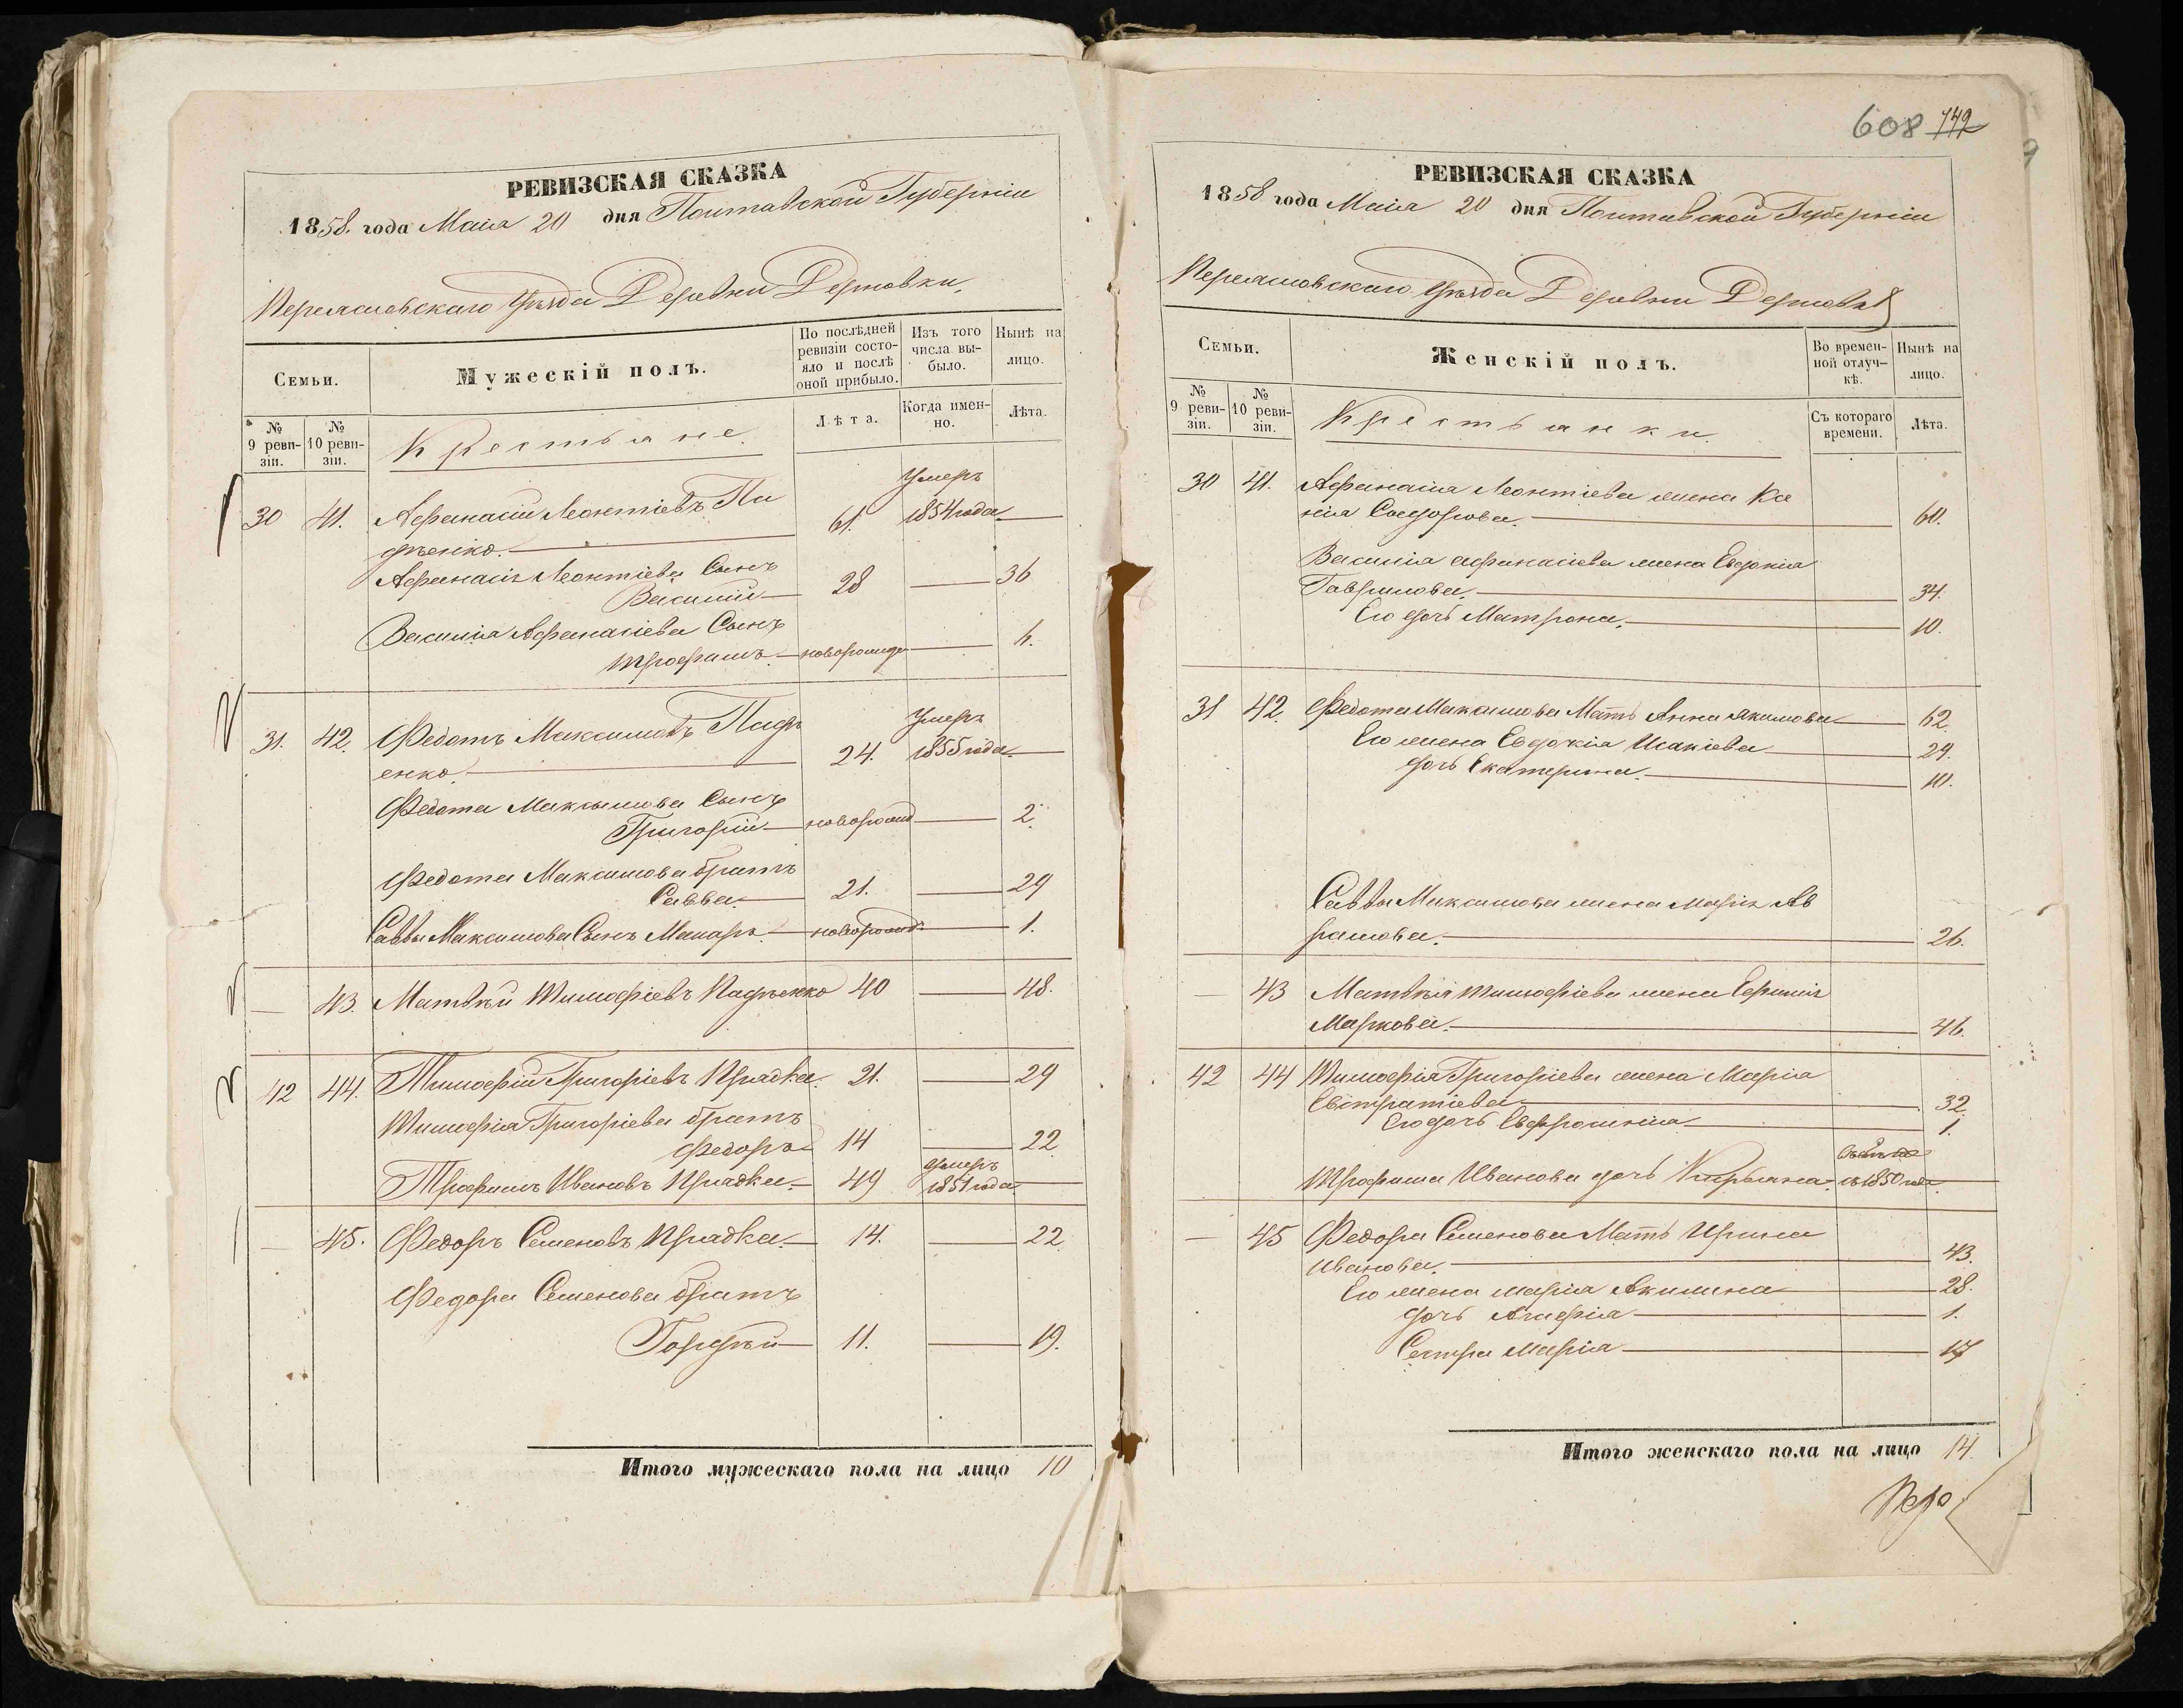 РЕВИЗСКАЯ СКАЗКА
1858. года Маія 20 дня Полтавской Губерніи
Переяславскаго Уѣзда Деревни Дерновки.
Семьи.
Мужескій полъ.
По послѣдней ревизіи состояло и послѣ оной прибыло.
Изъ того числа выбыло.
Нынѣ на лицо.
№ 9 ревизіи.
№ 10 ревизіи.
Крестьяне.
Лѣта.
Когда именно.
Лѣта.
Умеръ
30 41. Афанасій Леонтіевъ Па 61. 1854 года
дѣенко.
Афанасія Леонтіева Сынъ
Василій 28 36
Василія Афанасіева Сынъ
Трофимъ. новорожде 6.
Умеръ
31. 42. Федотъ Максимовъ Падѣ 24. 1855 года
енко.
Федота Максимова Сынъ
Григорій новорожд 2.
Федота Максимова братъ
Савва. 21. 29
Саввы Максимова Сынъ Макаръ. новорожд. 1.
43. Матвѣй Тимофіевъ Падѣенко 40 48.
42 44. Тимофій Григоріевъ Прядка. 21. 29
Тимофія Григоріева братъ
Федоръ 14 22
умеръ
Трофимъ Ивановъ Прядка. 49 1851 года
45. Федоръ Семеновъ Прядка. 14. 22
Федора Семенова братъ
Гордѣй 11. 19.
Итого мужескаго пола на лицо 10
608 742
РЕВИЗСКАЯ СКАЗКА
1858 года Маія 20 дня Полтавской Губерніи
Переяславскаго Уѣзда Деревни Дерновки
Семьи.
Женскій полъ.
Во временной отлучкѣ.
Нынѣ на лицо.
№ 9 ревизіи.
№ 10 ревизіи.
Крестьянки.
Съ котораго времени.
Лѣта.
30 41. Афанасія Леонтіева жена Ка
нія Сидорова. 60.
Василія Афанасіева жена Евдокія
Гаврилова. 34.
Его дочь Матрона. 10.
31 42. Федота Максимова Мать Анна Якимова 62
Его жена Евдокія Исакіева 29.
дочь Екатерина. 10.
Саввы Максимова жена Марія Ав
рамова. 26.
43 Матвѣя Тимофіева жена Ефимія
Маркова. 46.
42 44 Тимофія Григоріева жена Марія
Евстратіева 32
Его дочь Евфросинія 1.
Трофима Иванова дочь съ 1850 года
45 Федора Семенова Мать Ирина
Иванова. 43.
Его жена Марія Акимина 28.
дочь Агафія 1.
Сестра Марія 17
Итого женскаго пола на лицо 14